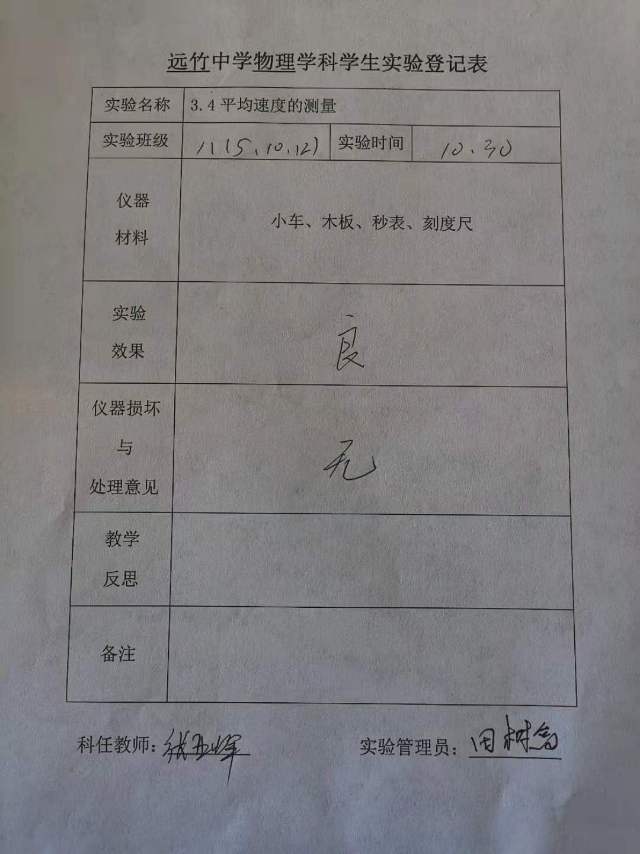 远竹中学物理学科学生实验登记表
实验名称 3.4平均速度的测量
实验班级 11(5、10、12) 实验时间 10.30
仪器
材料
小车、木板、秒表、刻度尺
实验
效果
良
仪器损坏
与
处理意见
无
教学
反思
备注
科任教师: 实验管理员: 田树富